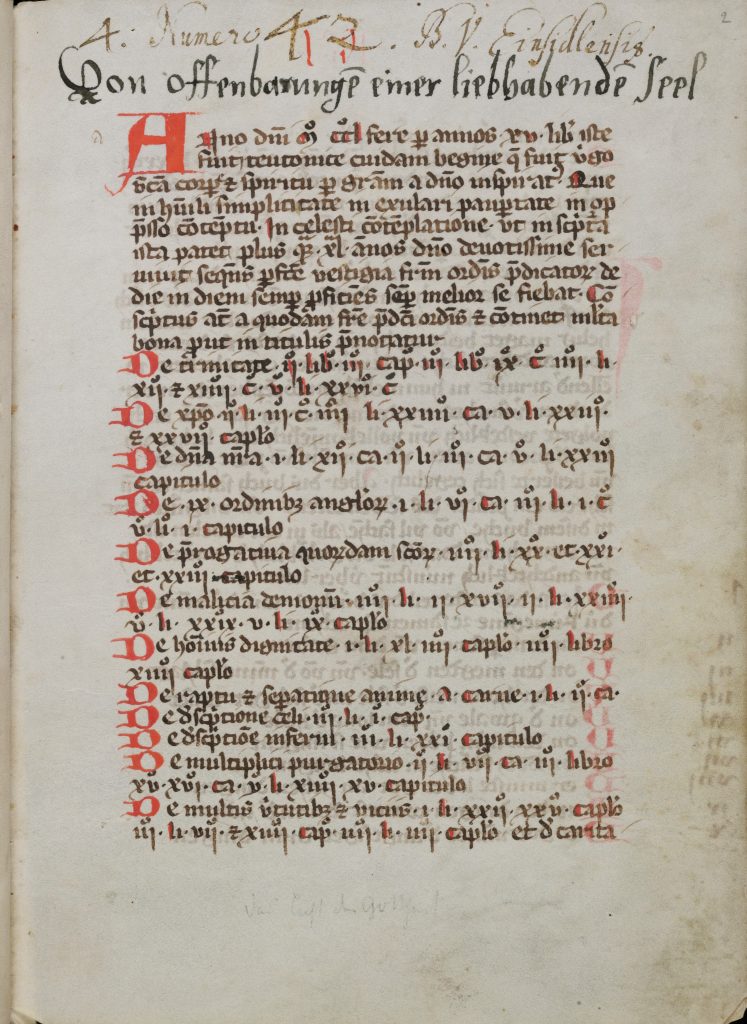 4. Numero 42. B. V. Einsidlensis.
2
Von offenbarungē einer liebhabendē Seel
Ano dn̄i m̊ ccl fere ꝑ annos xv lib iste
fuit teutonice cuidam begine q̄ fuit v̊go
sc̄a corꝑe ⁊ spiritu ꝑ gr̄am a dn̄o inspirat᷒ Que
in hūili simplicitate in exulari paupertate in op
p̄sso cōteptu · In celesti cōteplatione · vt in sc̄ptā
ista patet plus qͣ · xl · ānos dn̄o deuotissime ser
uiuit sequēs ꝑfcē vestigia fr̄m ordīs p̄dicatorꝝ de
die in diem semꝑ ꝓficiēs semꝑ melior se fiebat · Cō
sc̄ptus āt a quodam fr̄e p̄dc̄i ordīs ⁊ cōtinet ml̄ta
bona ꝓut in titulis p̄notatur
De trinitate · ij · lib · iij · cap · iij · lib · ix · c · iiij · li ·
xij · ⁊ xiiij · c · v · li · xxvi · c
De xp̄o · ij · li · iij · c · iiij · li · xxiiij · ca · v · li · xxiij ·
⁊ xxvij · capło
De dn̄a nr̄a · i · li · xij · ca · ij · li · iij · ca · v · li · xxiij
capitulo
De · ix · ordinibꝫ angłorꝝ · i · li · vi · ca · iij · li · i · c
v · li · i · capitulo
De p̄rogatiua quordam sc̄orꝝ · iiij · li · xx · et · xxi ·
et · xxiij · capitulo
De malicia demonū · iiij · li · ii · xvij · ii · li · xxiiij ·
v · li · xxix · v · li · ix · capło
De hoīnis dignitate · i · li · xl · iiij · capło · iiij · libro
xiiij capło
De raptu ⁊ seꝑatione anime · a · carne · i · li · ij · ca ·
De dsc̄ptione celi · iij · li · i · cap ·
De dsc̄ptiōe inferni · iii · li · xxi · capitulo
De multiplici purgatorio · ij · li · vij · ca · iij · libro
xv · xvi · ca · v · li · xiiij · xv · capitulo
De multis v̊tutibꝫ ⁊ viciis · i · li · xxij · xxv · capło
iij · li · vij · ⁊ xiiij · cap · iiij · li · iiij · capło · et d̄ carita